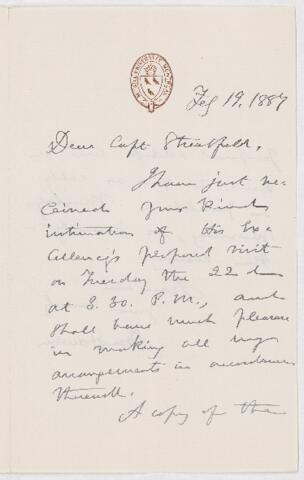 Feb 19, 1887
Dear Capt. Streatfeild,
I have just re-
ceived your kind
intimation of His Ex-
cellency's proposed visit
on Tuesday the 22d
at 3.30. P.M., and
shall have much pleasure
in making all my
arrangements in accordance
therewith.
A copy of the